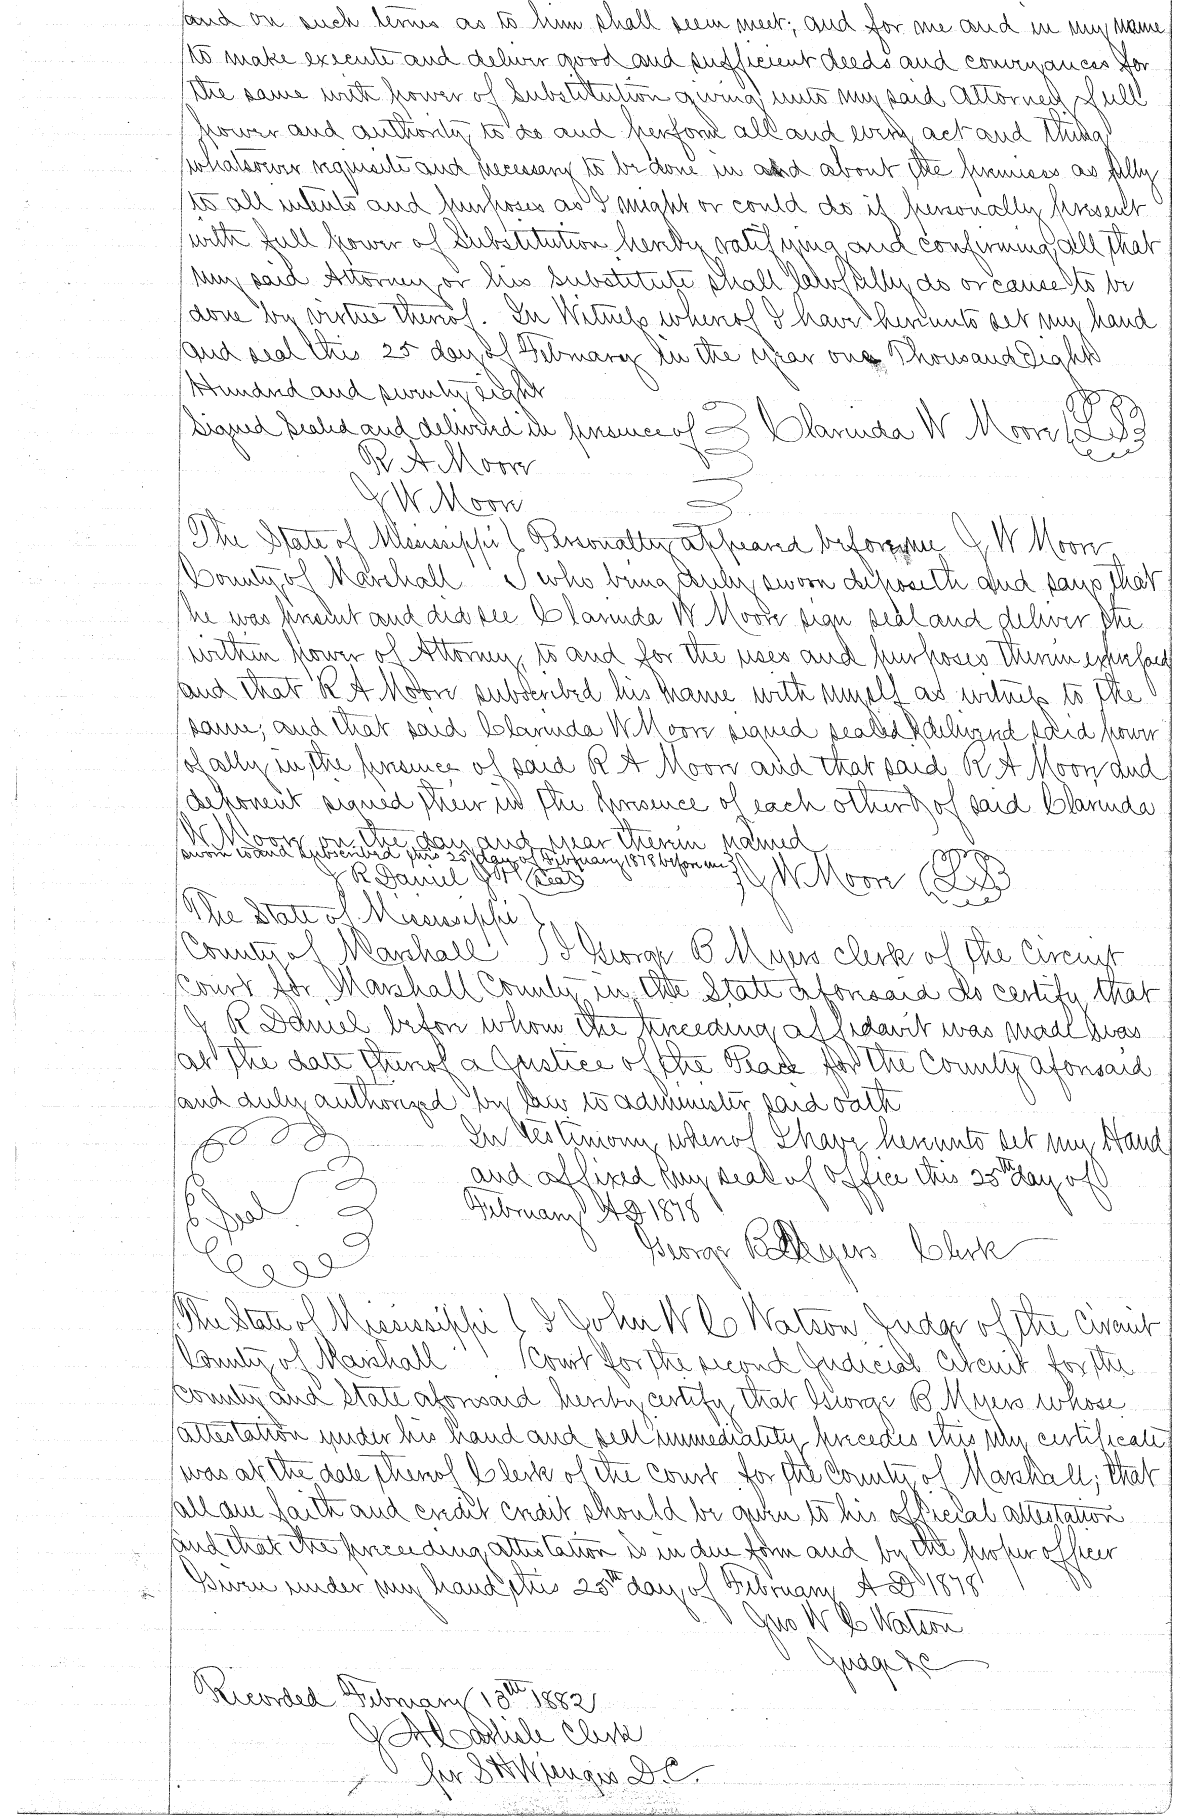 and on such terms as to him shall seem meet; and for me and in my name
to make execute and deliver good and sufficient deeds and conveyances for
the same with power of Substitution giving unto my said Attorney full
power and authority to do and perform all and every act and thing
whatsoever requisite and necessary to be done in and about the premises as fully
to all intents and purposes as I might or could do if personally present
with full power of Substitution hereby ratifying and confirming all that
my said Attorney or his Substitute shall lawfully do or cause to be
done by virtue thereof. In Witness whereof I have hereunto set my hand
and seal this 25 day of February in the year one Thousand Eight
Hundred and seventy eight
Signed Sealed and delivered in presence of Clarinda W Moore (LS)
R A Moore
J W Moore
The State of Mississippi } Personally appeared before me J W Moore
County of Marshall } who being duly sworn deposeth and says that
he was present and did see Clarinda W Moore sign seal and deliver the
within power of Attorney, to and for the uses and purposes therein expressed
and that R A Moore subscribed his name with myself as witness to the
same; and that said Clarinda W Moore signed sealed & delivered said power
of atty in the presence of said R A Moore and that said R A Moore and
deponent signed their in the presence of each other & of said Clarinda
W Moore on the day and year therein named
sworn to and subscribed this 25 day of February 1878 before me
J R Daniel J P (Seal) J W Moore (LS)
The State of Mississippi }
County of Marshall } I George B Myers clerk of the Circuit
court for Marshall County in the State aforesaid do certify that
J R Daniel before whom the preceeding affidavit was made was
at the date thereof a Justice of the Peace for the County aforesaid
and duly authorized by law to administer said oath
In testimony whereof I have hereunto set my Hand
and affixed my seal of office this 25th day of
Seal
February AD 1878
George B Myers Clerk
The State of Mississippi } I John W C Watson Judge of the Circuit
County of Marshall } Court for the second Judicial Circuit for the
county and State aforesaid hereby certify that George B Myers whose
attestation under his hand and seal immediately precedes this my certificate
was at the date thereof Clerk of the court for the County of Marshall; that
all due faith and credit credit should be given to his official attestation
and that the preceeding attestation is in due form and by the proper officer
Given under my hand this 25th day of February A D 1878
Jno W C Watson
Judge &c
Recorded February 13th 1882
J A Carlisle Clerk
per S H D.C.